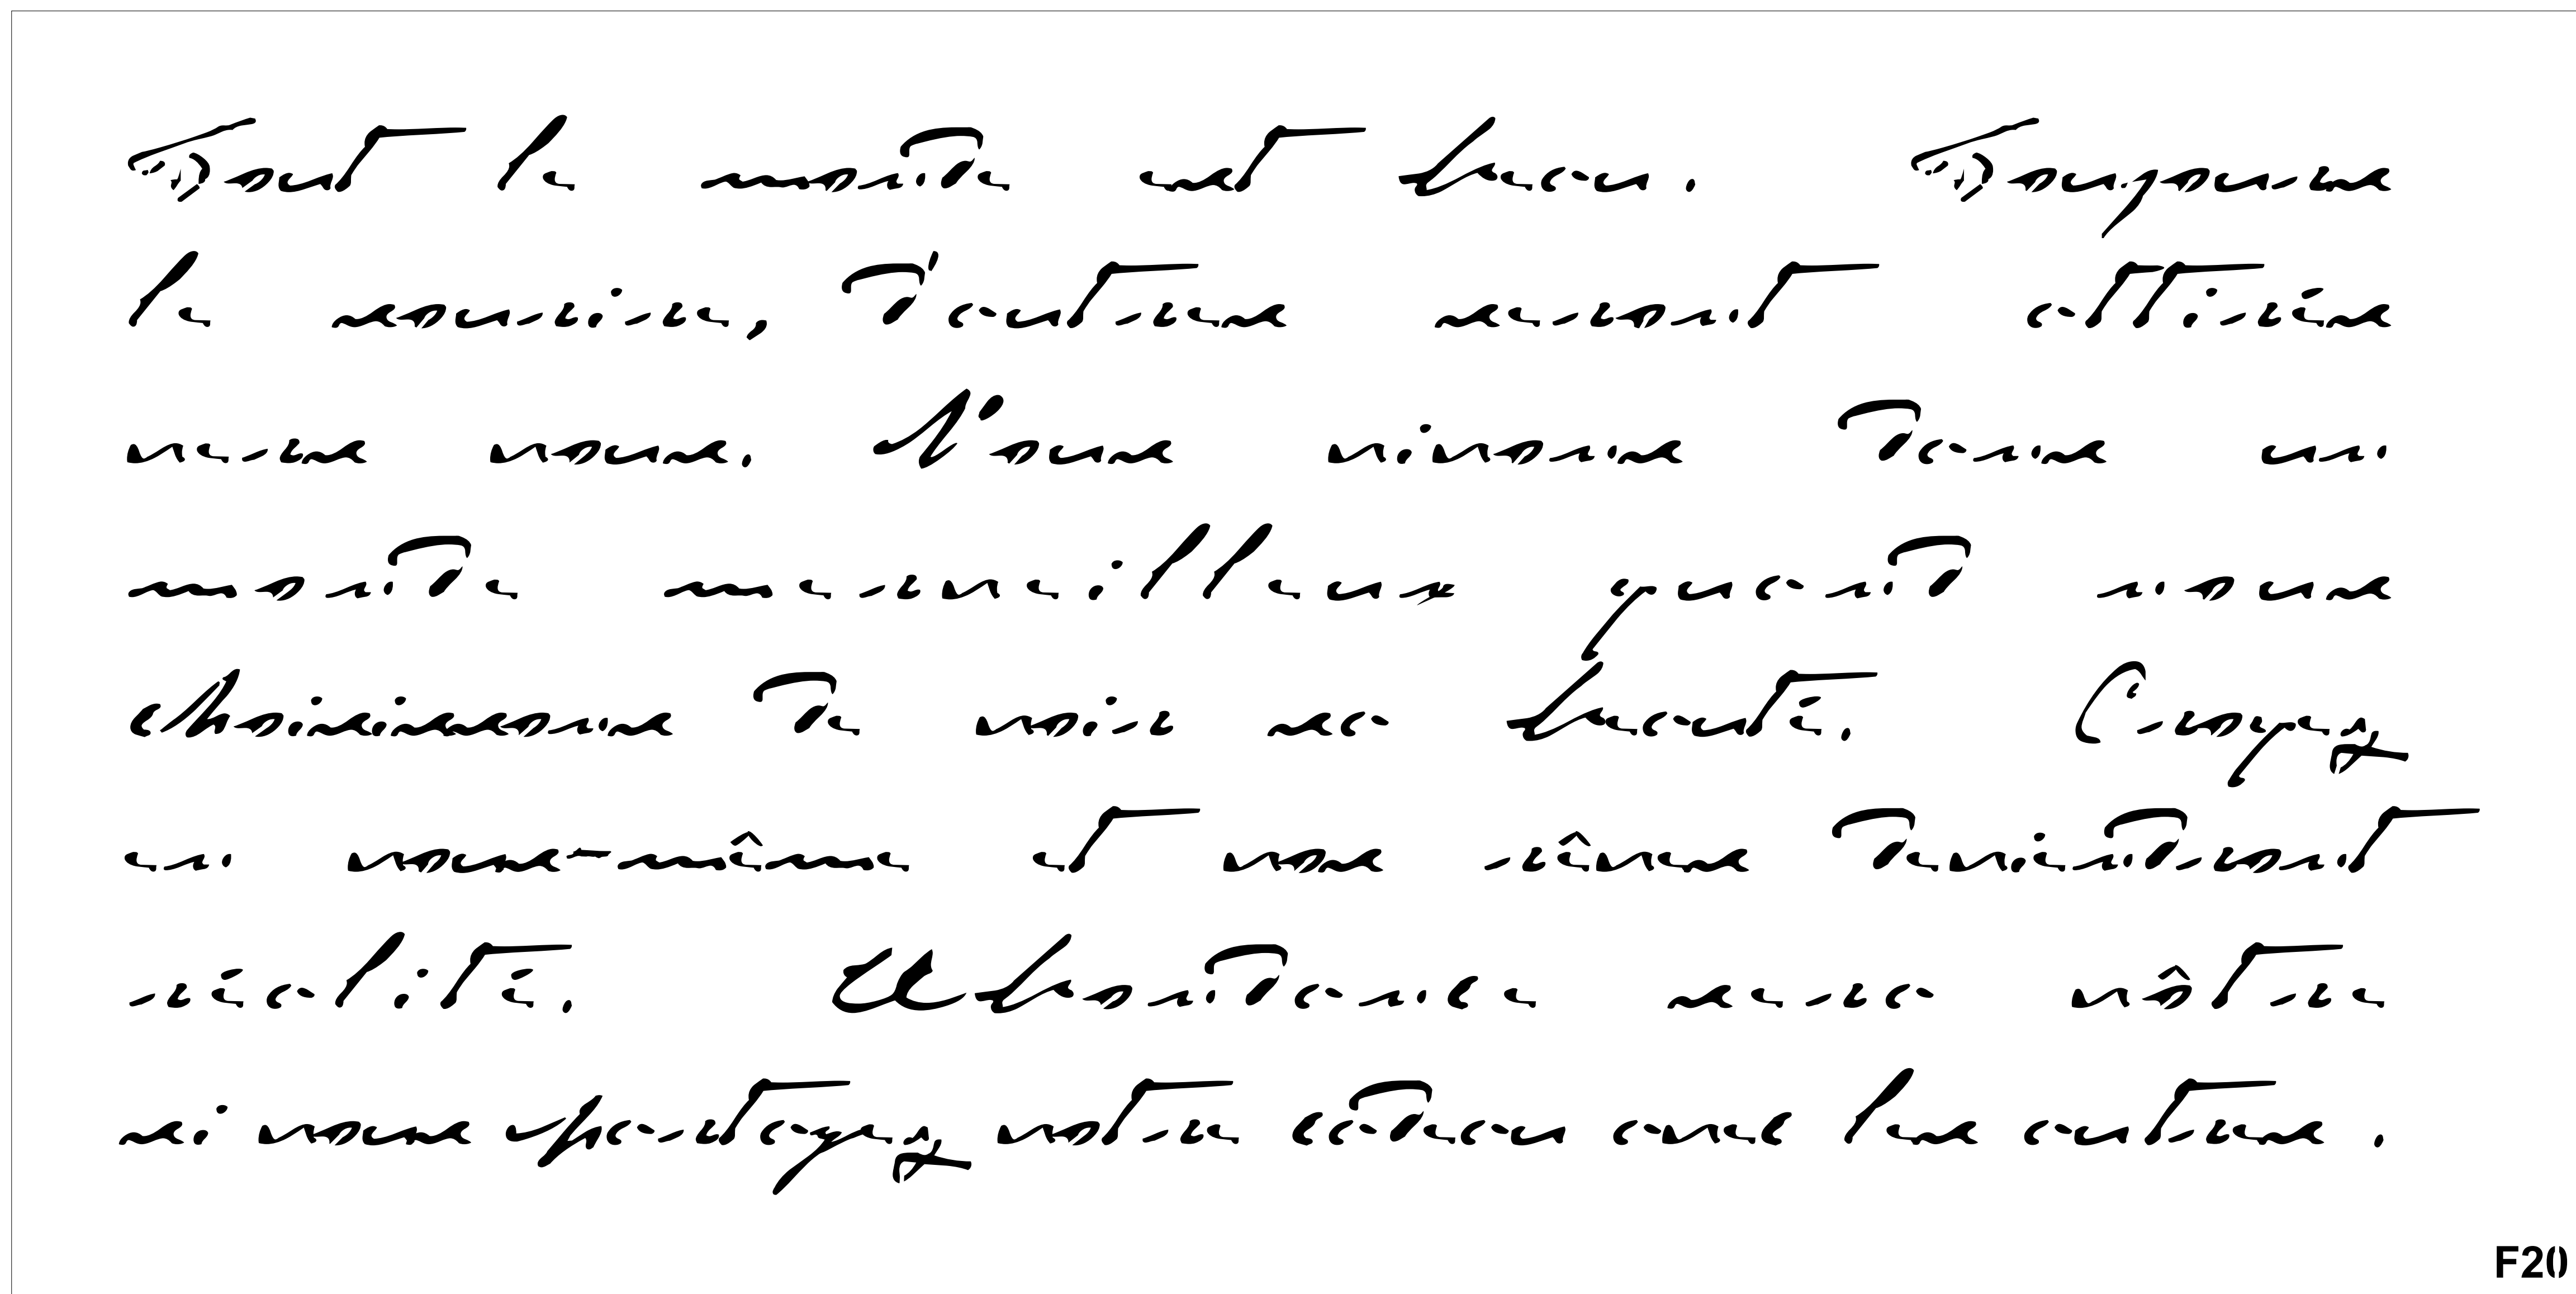 Tout le monde est beau. Toujours
le sourire, d'autres seront attirés
vers vous. Nous vivons dans un
monde merveilleux quand nous
choisissons de voir sa beauté. Croyez
en vous-même et vos rêves deviendront
réalité. Abondance sera vôtre
si vous partagez votre cadeau avec les autres .
F20